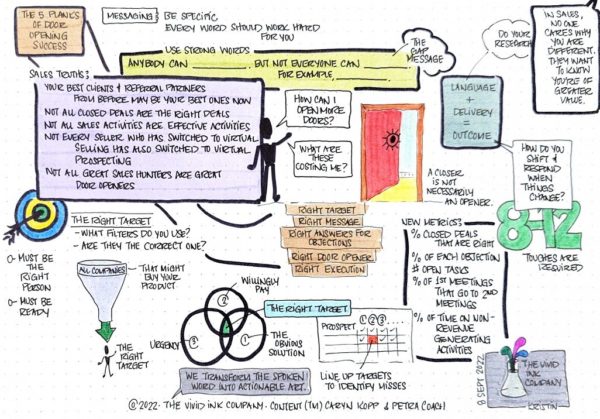 THE 5 PLANKS
OF DOOR
OPENING
SUCCESS
MESSAGING
BE SPECIFIC
EVERY WORD SHOULD WORK HARD
FOR YOU
USE STRONG WORDS
ANYBODY CAN ________, BUT NOT EVERYONE CAN ________
FOR EXAMPLE, ________.
THE
GAP
MESSAGE
DO YOUR
RESEARCH
IN SALES,
NO ONE
CARES WHY
YOU ARE
DIFFERENT.
THEY WANT
TO KNOW
YOU'RE OF
GREATER
VALUE.
SALES TRUTHS:
YOUR BEST CLIENTS & REFERRAL PARTNERS
FROM BEFORE MAY BE YOUR BEST ONES NOW
NOT ALL CLOSED DEALS ARE THE RIGHT DEALS
NOT ALL SALES ACTIVITIES ARE EFFECTIVE ACTIVITIES
NOT EVERY SELLER WHO HAS SWITCHED TO VIRTUAL
SELLING HAS ALSO SWITCHED TO VIRTUAL
PROSPECTING
NOT ALL GREAT SALES HUNTERS ARE GREAT
DOOR OPENERS
HOW CAN I
OPEN MORE
DOORS?
WHAT ARE
THESE
COSTING ME?
A CLOSER
IS NOT
NECESSARILY
AN OPENER.
LANGUAGE
+
DELIVERY
=
OUTCOME
HOW DO YOU
SHIFT &
RESPOND
WHEN
THINGS
CHANGE?
8-12
TOUCHES ARE
REQUIRED
THE RIGHT TARGET
- WHAT FILTERS DO YOU USE?
- ARE THEY THE CORRECT ONE?
MUST BE
THE
RIGHT
PERSON
MUST BE
READY
ALL COMPANIES
THAT MIGHT
BUY YOUR
PRODUCT
THE
RIGHT
TARGET
RIGHT TARGET
RIGHT MESSAGE
RIGHT ANSWERS FOR
OBJECTIONS
RIGHT DOOR OPENER
RIGHT EXECUTION
WILLINGLY
PAY
2
3
1
URGENCY
THE RIGHT TARGET
THE
OBVIOUS
SOLUTION
PROSPECT
1 2 3
LINE UP TARGETS
TO IDENTIFY MISSES
NEW METRICS:
% CLOSED DEALS
THAT ARE RIGHT
% OF EACH OBJECTION
# OPEN TASKS
% OF 1ST MEETINGS
THAT GO TO 2ND
MEETINGS
% OF TIME ON NON-
REVENUE
GENERATING
ACTIVITIES
8 SEPT 2022
THE VIVID
INK
COMPANY
KRISTIN
WE TRANSFORM THE SPOKEN
WORD INTO ACTIONABLE ART.
© 2022 - THE VIVID INK COMPANY - CONTENT (TM) CARYN KOPP & PETRA COACH